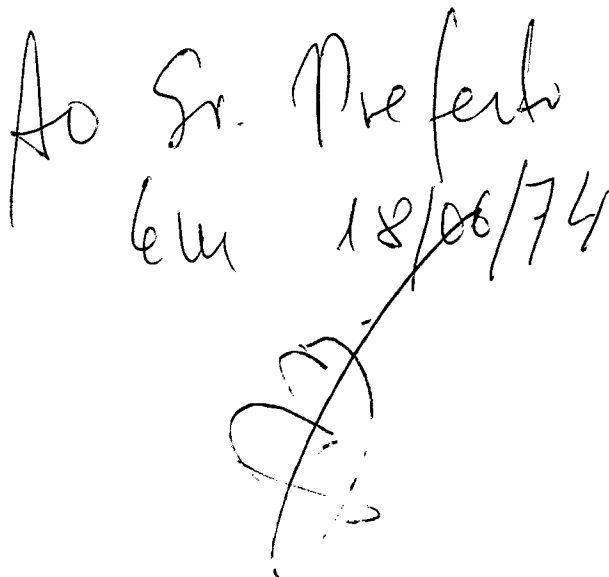 Ao Sr. Prefeito
em 18/06/74